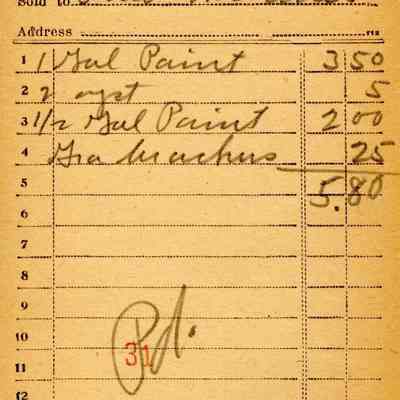 Sold to
Address
1 1 Gal Paint 3 50
2 2 5
3 1/2 Gal Paint 2 00
4 25
5 5.80
6
7
8
9
Pd.
10
31
11
12